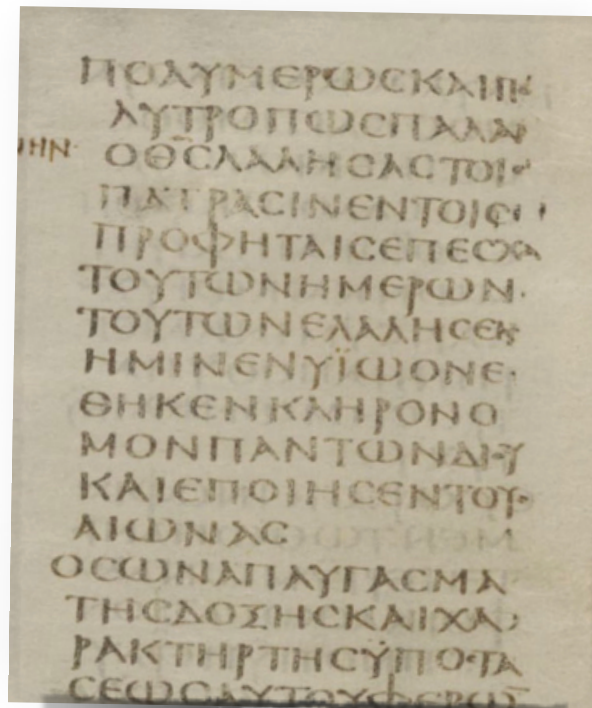 ΠΟΛΥΜΕΡΩϹΚΑΙΠΟ
ΛΥΤΡΟΠΩϹΠΑΛΑΙ
ΟΘ̅Ϲ̅ΛΑΛΗϹΑϹΤΟΙϹ
ΠΑΤΡΑϹΙΝΕΝΤΟΙϹ
ΠΡΟΦΗΤΑΙϹΕΠΕϹΧΑ
ΤΟΥΤΩΝΗΜΕΡΩΝ
ΤΟΥΤΩΝΕΛΑΛΗϹΕΝ
ΗΜΙΝΕΝΥΪΩΟΝΕ
ΘΗΚΕΝΚΛΗΡΟΝΟ
ΜΟΝΠΑΝΤΩΝΔΙΟΥ
ΚΑΙΕΠΟΙΗϹΕΝΤΟΥϹ
ΑΙΩΝΑϹ
ΟϹΩΝΑΠΑΥΓΑϹΜΑ
ΤΗϹΔΟΞΗϹΚΑΙΧΑ
ΡΑΚΤΗΡΤΗϹΫΠΟϹΤΑ
ϹΕΩϹΑΥΤΟΥΦΕΡΩ̅